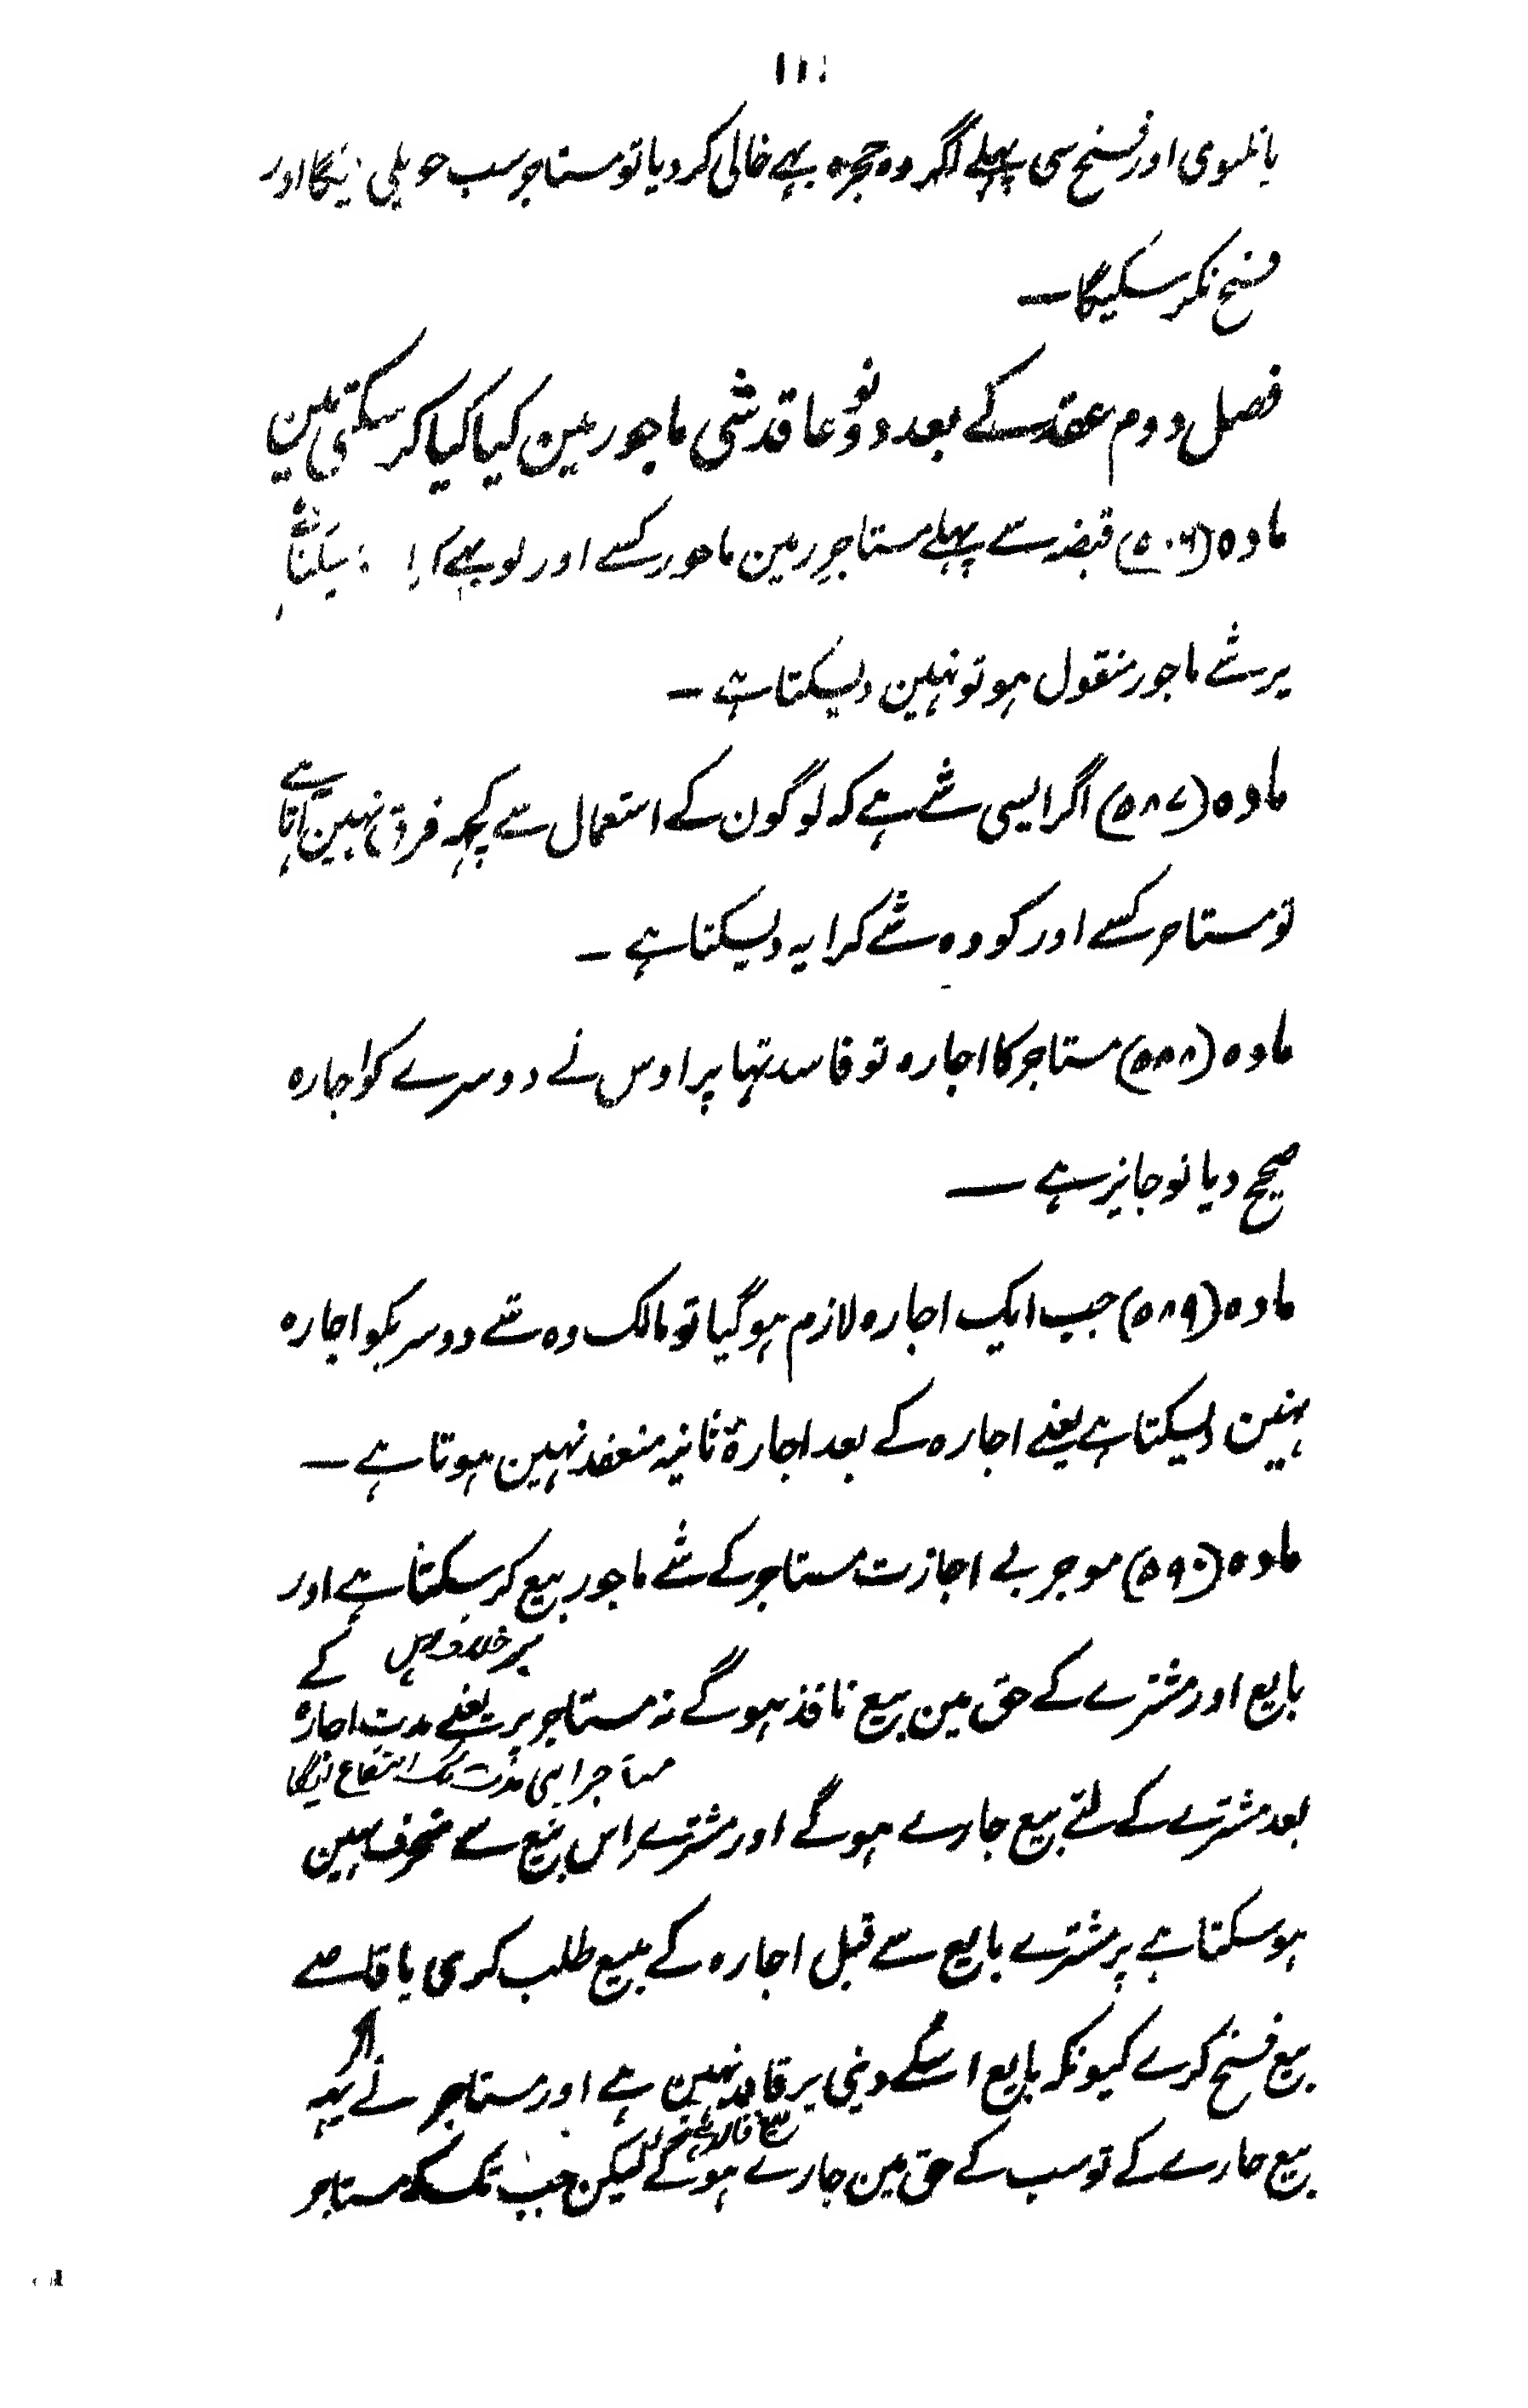 اور فسخ سی پہلے اگر وہ حجرہ بہے خالی کر دیا تو مستاجر سب حویلی لیگا اور
فسخ نکر سکیگا —
فصل دوم عقد کے بعد دونو عاقد شی ماجور مین کیا کیا کر سکتی ہین
مادہ (۵۸۶) قبضہ سے پہلے مستاجر زمین ماجور کسے اور کو بہے
پر شے ماجور منقول ہو تو نہین دیسکتا ہے —
مادہ (۵۸۷) اگر ایسی شے ہے کہ لوگون کے استعمال سے کچہہ فرق نہین آتا ہے
تو مستاجر کسے اور کو وہ شے کرایہ دیسکتا ہے —
مادہ (۵۸۸) مستاجر کا اجارہ تو فاسد تہا پر اوس نے دوسرے کو اجارہ
صحیح دیا تو جایز ہے —
مادہ (۵۸۹) جب ایک اجارہ لازم ہو گیا تو مالک وہ شے دوسریکو اجارہ
نہین دیسکتا ہے یعنے اجارہ کے بعد اجارۂ ثانیہ منعقد نہین ہوتا ہے —
مادہ (۵۹۰) موجر بے اجازت مستاجر کے شے ماجور بیع کر سکتا ہے اور
بایع اور مشترے کے حق مین بیع نافذ ہوگے نہ مستاجر پر یعنے مدت اجارہ کے
مستاجر مدت تک انتفاع لیگا
بعد مشترے کے لئے بیع جارے ہوگے اور مشترے اس بیع سے منحرف نہین
ہو سکتا ہے پر مشترے بایع سے قبل اجارہ کے مبیع طلب کری یا قاضے
بیع فسخ کرے کیونکہ بایع اسکے دینی پر قادر نہین ہے اور مستاجر نے اگر یہہ
بیع جارے کے تو سب کے حق مین جارے ہوگے لیکن جب تک کہ مستاجر